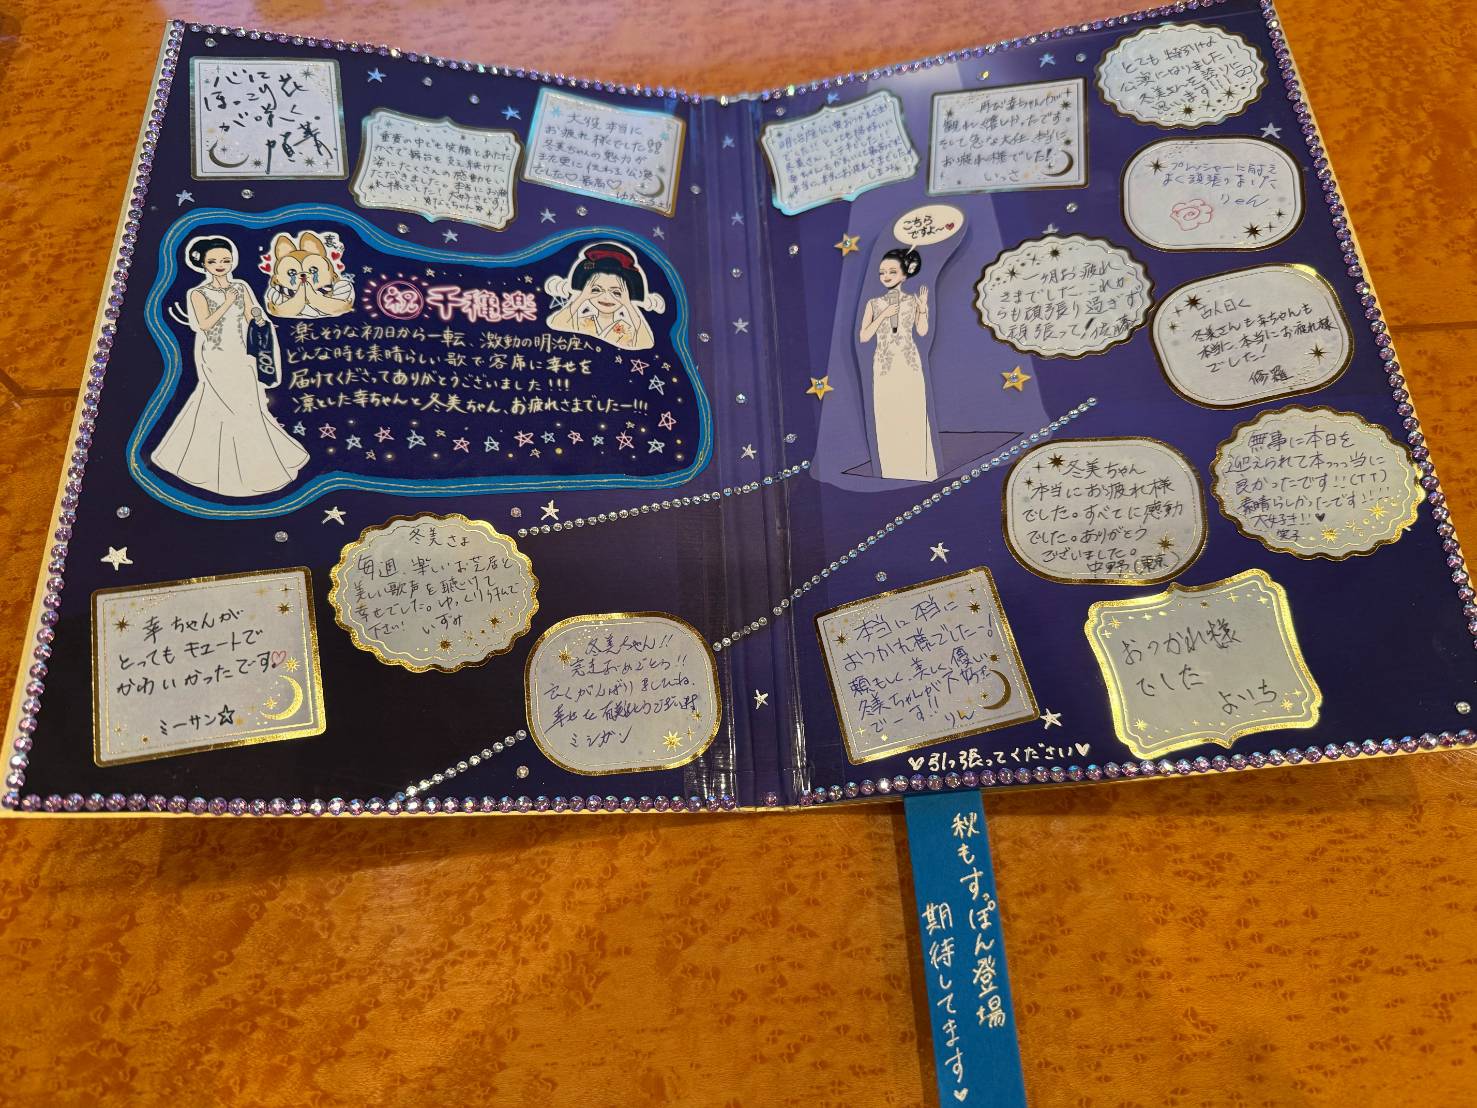 心に花
ほっこり
が咲く。
重責の中でも笑顔とあたた
かさで舞台を支え続けた
姿にたくさんの感動をい
ただきました。本当にお疲
れ様でした!大好きです!
大役本当に
お疲れ様でした
冬美ちゃんの魅力が
また更に伝わる公演
でした♡最高♡
喜
祝 千穐楽
楽しそうな初日から一転、激動の明治座へ。
どんな時も素晴らしい歌で客席に幸せを
届けてくださってありがとうございました!!!
凛とした幸ちゃんと冬美ちゃん、お疲れさまでしたー!!!
幸ちゃんが
とってもキュートで
かわいかったです。♡
ミーサン☆
冬美さま
毎週、楽しいお芝居と
美しい歌声を聴けて
幸せでした。ゆっくり休んで
下さい! いずみ
冬美ちゃん!!
完走おめでとう!!
良くがんばりましたね。
幸せを有難とうございます
ミシガン
明治座公演おつかれさま
でした!!とても素晴らしい
観れて嬉しかったです。
そして急な大任、本当に
お疲れ様でした!
いっさ
とても
公演になりました!
冬美さんを誇りに
思います!!
プレッシャーに耐え
よく頑張りました
りゅん
こちら
ですよ〜♥
一ヶ月お疲れ
さまでした。これか
らも頑張り過ぎず
頑張って!佐藤
白く
冬美さんも幸ちゃんも
本当に、本当にお疲れ様
でした!
修羅
冬美ちゃん
本当にお疲れ様
でした。すべてに感動
でした。ありがとう
ございました。
中野(東京)
無事に本日を
迎えられて本っっっ当に
良かったです!!(TT)
素晴らしかったです!!!!
大好き!!♥
本当に本当に
おつかれ様でしたー!
頼もしく、美しく、優しい
冬美ちゃんが大好き
でーす!!りん
おつかれ様
でした
よいち
♥引っ張ってください♥
秋もすっぽん登場
期待してます♥